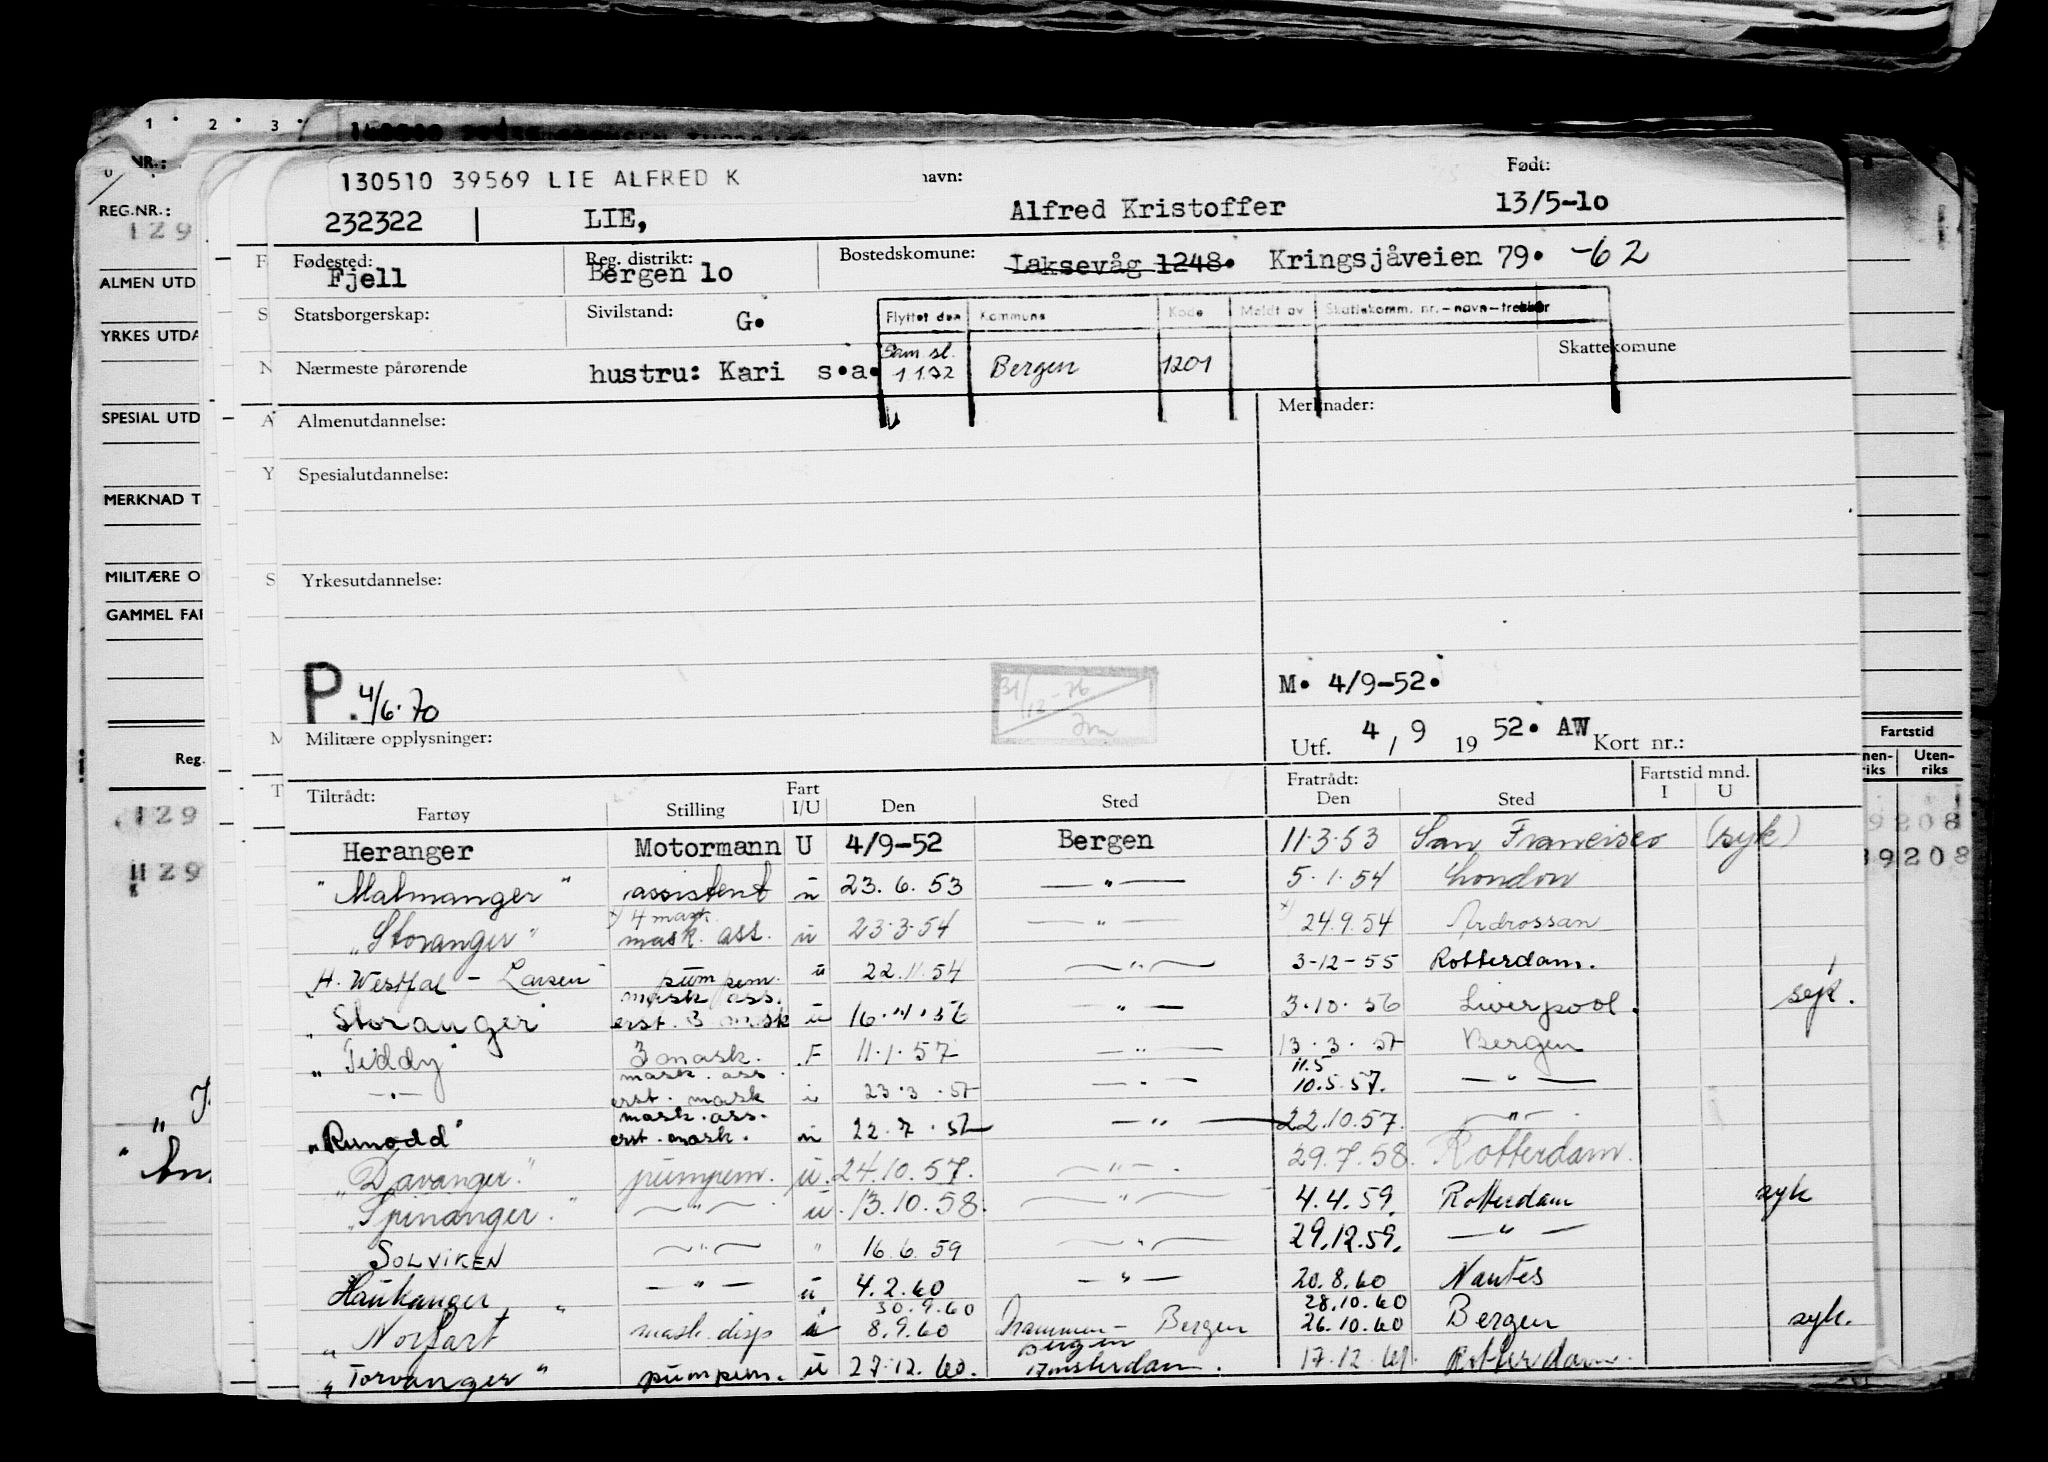 1 · 2 · 3 ·
NR.:
REG.NR.:
129
ALMEN UTD
YRKES UTDA
SPESIAL UTD
MERKNAD T
MILITÆRE O
GAMMEL FAR
Reg.
129
129
130510 39569 LIE ALFRED K
navn:
Født:
232322 LIE, Alfred Kristoffer 13/5-1o
Fødested: Reg. distrikt: Bostedskomune:
Fjell Bergen 1o Laksevåg 1248. Kringsjåveien 79. -62
Statsborgerskap: Sivilstand: G.
Flyttet den Kommune Kode Meldt av Skattekomm. nr.-navn-trekker
Skattekomune
Nærmeste pårørende hustru: Kari s.a.
Sam.sl. 1 1.72 Bergen 1201
Almenutdannelse: Merknader:
Spesialutdannelse:
Yrkesutdannelse:
P. 4/6.70
31/12-76
M. 4/9-52.
Utf. 4 / 9 19 52. AW Kort nr.:
Militære opplysninger:
Tiltrådt: Fratrådt: Fartstid mnd.
Fartøy Stilling Fart I/U Den Sted Den Sted I U
Fartstid
nen-riks Uten-riks
9208
39208
Heranger Motormann U 4/9-52 Bergen 11.3.53 San Francisco (syk)
"Malmanger" assistent u 23.6.53 —"— 5.1.54 London
x) 4 mask.
"Storanger" mask. ass. u 23.3.54 —"— x) 24.9.54 Ardrossan
"H. Westfal-Larsen" pumpem. u 22.11.54 —"— 3-12-55 Rotterdam.
mask ass.
"Storanger" erst. 3 mask u 16.4.56 —"— 3.10.56 Liverpool. syk.
"Teddy" 3 mask. F 11.1.57 —"— 13.3.57 Bergen
mask. ass. 11.5
—"— erst. mask 23.3.57 —"— 10.5.57. —"—
mask. ass.
"Runodd" erst. mask. u 22.7.57 —"— 22.10.57. —"—
"Davanger." pumpem. u. 24.10.57. —"— 29.7.58. Rotterdam.
"Spinanger." —"— u. 13.10.58. —"— 4.4.59. Rotterdam syk
SOLVIKEN —"— " 16.6.59 —"— 29.12.59. —"—
Haukanger —"— u 4.2.60 —"— 20.8.60 Nantes
30.9.60 28.10.60
"Norfart" mask. disp 8.9.60 Drammen- Bergen 26.10.60 Bergen syk.
Bergen
"Torvanger" pumpem. u 27.12.60. Amsterdam. 17.12.61. Rotterdam.